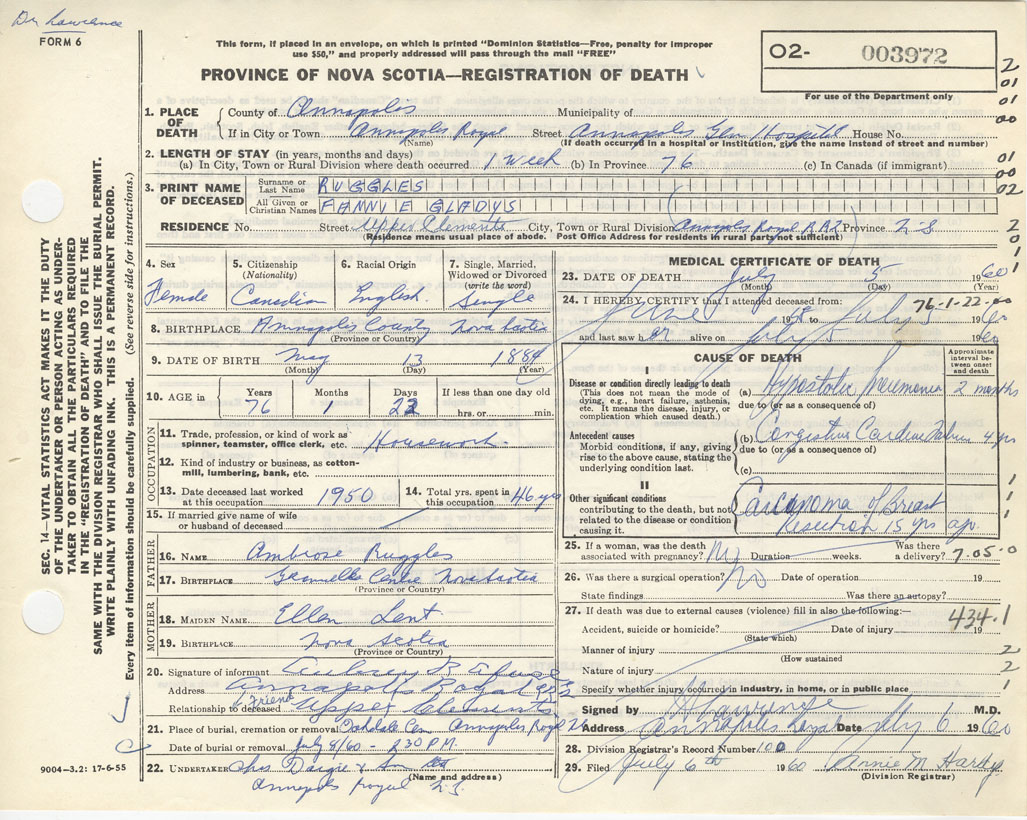 Dr Lawrence
FORM 6
This form, if placed in an envelope, on which is printed "Dominion Statistics—Free, penalty for improper
use $50," and properly addressed will pass through the mail "FREE"
PROVINCE OF NOVA SCOTIA—REGISTRATION OF DEATH
O2- 003972
For use of the Department only
2
01
01
00
01
00
02
2
0
1
1
SEC. 14—VITAL STATISTICS ACT MAKES IT THE DUTY
OF THE UNDERTAKER OR PERSON ACTING AS UNDER-
TAKER TO OBTAIN ALL THE PARTICULARS REQUIRED
IN THE "REGISTRATION OF DEATH" AND TO FILE THE
SAME WITH THE DIVISION REGISTRAR WHO SHALL ISSUE THE BURIAL PERMIT.
WRITE PLAINLY WITH UNFADING INK. THIS IS A PERMANENT RECORD.
Every item of information should be carefully supplied. (See reverse side for instructions.)
1. PLACE OF DEATH
County of Annapolis Municipality of
If in City or Town Annapolis Royal Street Annapolis Gen Hospital House No.
(Name) (If death occurred in a hospital or institution, give the name instead of street and number)
2. LENGTH OF STAY (in years, months and days)
(a) In City, Town or Rural Division where death occurred 1 Week (b) In Province 76 (c) In Canada (if immigrant)
3. PRINT NAME OF DECEASED
Surname or Last Name RUGGLES
All Given or Christian Names FANNIE GLADYS
RESIDENCE No. Street Upper Clements City, Town or Rural Division Annapolis Royal RR2 Province N.S.
(Residence means usual place of abode. Post Office Address for residents in rural parts not sufficient)
4. Sex Female
5. Citizenship (Nationality) Canadian
6. Racial Origin English
7. Single, Married, Widowed or Divorced (write the word) Single
8. BIRTHPLACE Annapolis County Nova Scotia
(Province or Country)
9. DATE OF BIRTH May 13 1884
(Month) (Day) (Year)
10. AGE in Years Months Days If less than one day old
76 1 22 hrs. or min.
OCCUPATION
11. Trade, profession, or kind of work as spinner, teamster, office clerk, etc. Housework
12. Kind of industry or business, as cotton-mill, lumbering, bank, etc.
13. Date deceased last worked at this occupation 1950
14. Total yrs. spent in this occupation 46 yrs
15. If married give name of wife or husband of deceased
FATHER
16. NAME Ambrose Ruggles
17. BIRTHPLACE Centre Nova Scotia
(Province or Country)
MOTHER
18. MAIDEN NAME Ellen Lent
19. BIRTHPLACE Nova Scotia
(Province or Country)
20. Signature of informant
Address Annapolis Royal RR2
Relationship to deceased Friend Upper Clements
21. Place of burial, cremation or removal Oakdale Cem Annapolis Royal
Date of burial or removal July 8/60 - 2.30 P.M.
22. UNDERTAKER Chas Dargie & Son Ltd
(Name and address)
Annapolis Royal N.S.
9004—3.2: 17-6-55
MEDICAL CERTIFICATE OF DEATH
23. DATE OF DEATH July 5 1960
(Month) (Day)
24. I HEREBY CERTIFY that I attended deceased from: 76-1-22-00
June 19 to July 5 1960
and last saw her alive on July 5 1960
CAUSE OF DEATH
Approximate interval between onset and death
I
Disease or condition directly leading to death
(This does not mean the mode of dying, e.g., heart failure, asthenia, etc. It means the disease, injury, or complication which caused death.)
(a) Hypostatic Pneumonia 2 months
due to (or as a consequence of)
Antecedent causes
Morbid conditions, if any, giving rise to the above cause, stating the underlying condition last.
(b) Congestive Cardiac Failure 4 yrs
due to (or as a consequence of)
(c)
II
Other significant conditions
contributing to the death, but not related to the disease or condition causing it.
Carcinoma of Breast
Resection 15 yrs ago.
1
1
1
25. If a woman, was the death associated with pregnancy? No Duration weeks. Was there a delivery? 7.05.0
26. Was there a surgical operation? No Date of operation 19
State findings Was there an autopsy?
27. If death was due to external causes (violence) fill in also the following:— 434.1
Accident, suicide or homicide? Date of injury 19
(State which)
Manner of injury 2
(How sustained)
Nature of injury 2
Specify whether injury occurred in industry, in home, or in public place 1
Signed by Lawrence M.D.
Address Annapolis Royal Date July 6 1960
28. Division Registrar's Record Number 100
29. Filed July 6th 1960 Annie M. Hardy
(Division Registrar)